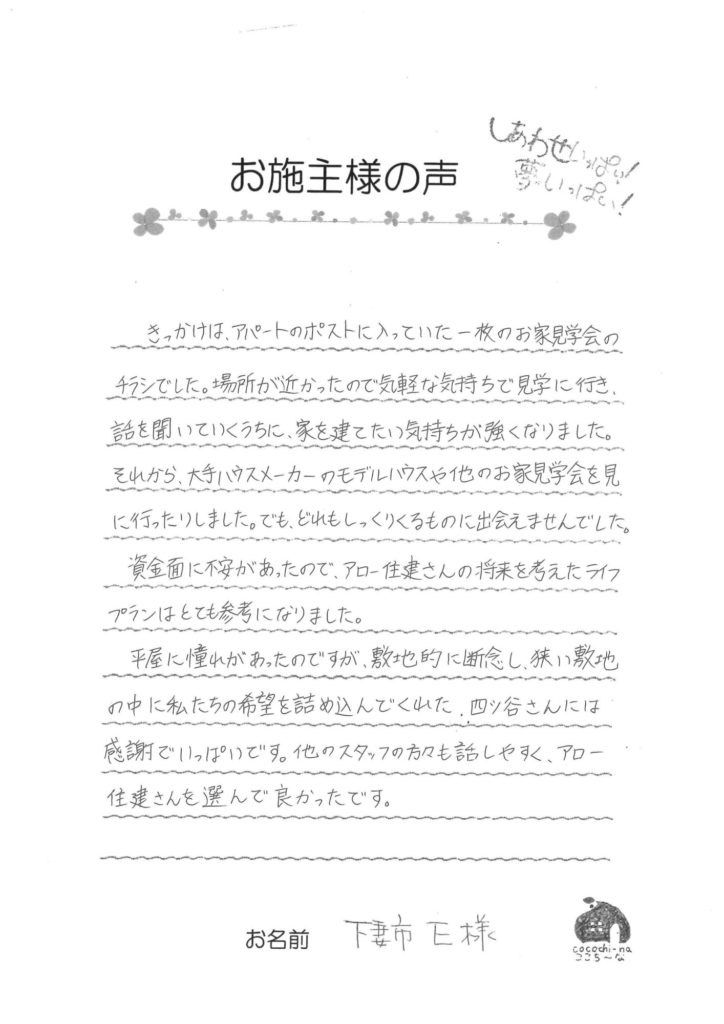 しあわせいっぱい!
夢いっぱい!
お施主様の声
きっかけは、アパートのポストに入っていた一枚のお家見学会の
チラシでした。場所が近かったので気軽な気持ちで見学に行き、
話を聞いていくうちに、家を建てたい気持ちが強くなりました。
それから、大手ハウスメーカーのモデルハウスや他のお家見学会を見
に行ったりしました。でも、どれもしっくりくるものに出会えませんでした。
資金面に不安があったので、アロー住建さんの将来を考えたライフ
プランはとても参考になりました。
平屋に憧れがあったのですが、敷地的に断念し、狭い敷地
の中に私たちの希望を詰め込んでくれた、四ツ谷さんには
感謝でいっぱいです。他のスタッフの方々も話しやすく、アロー
住建さんを選んで良かったです。
お名前 下妻市 E様
cocochi-na
ここち〜な